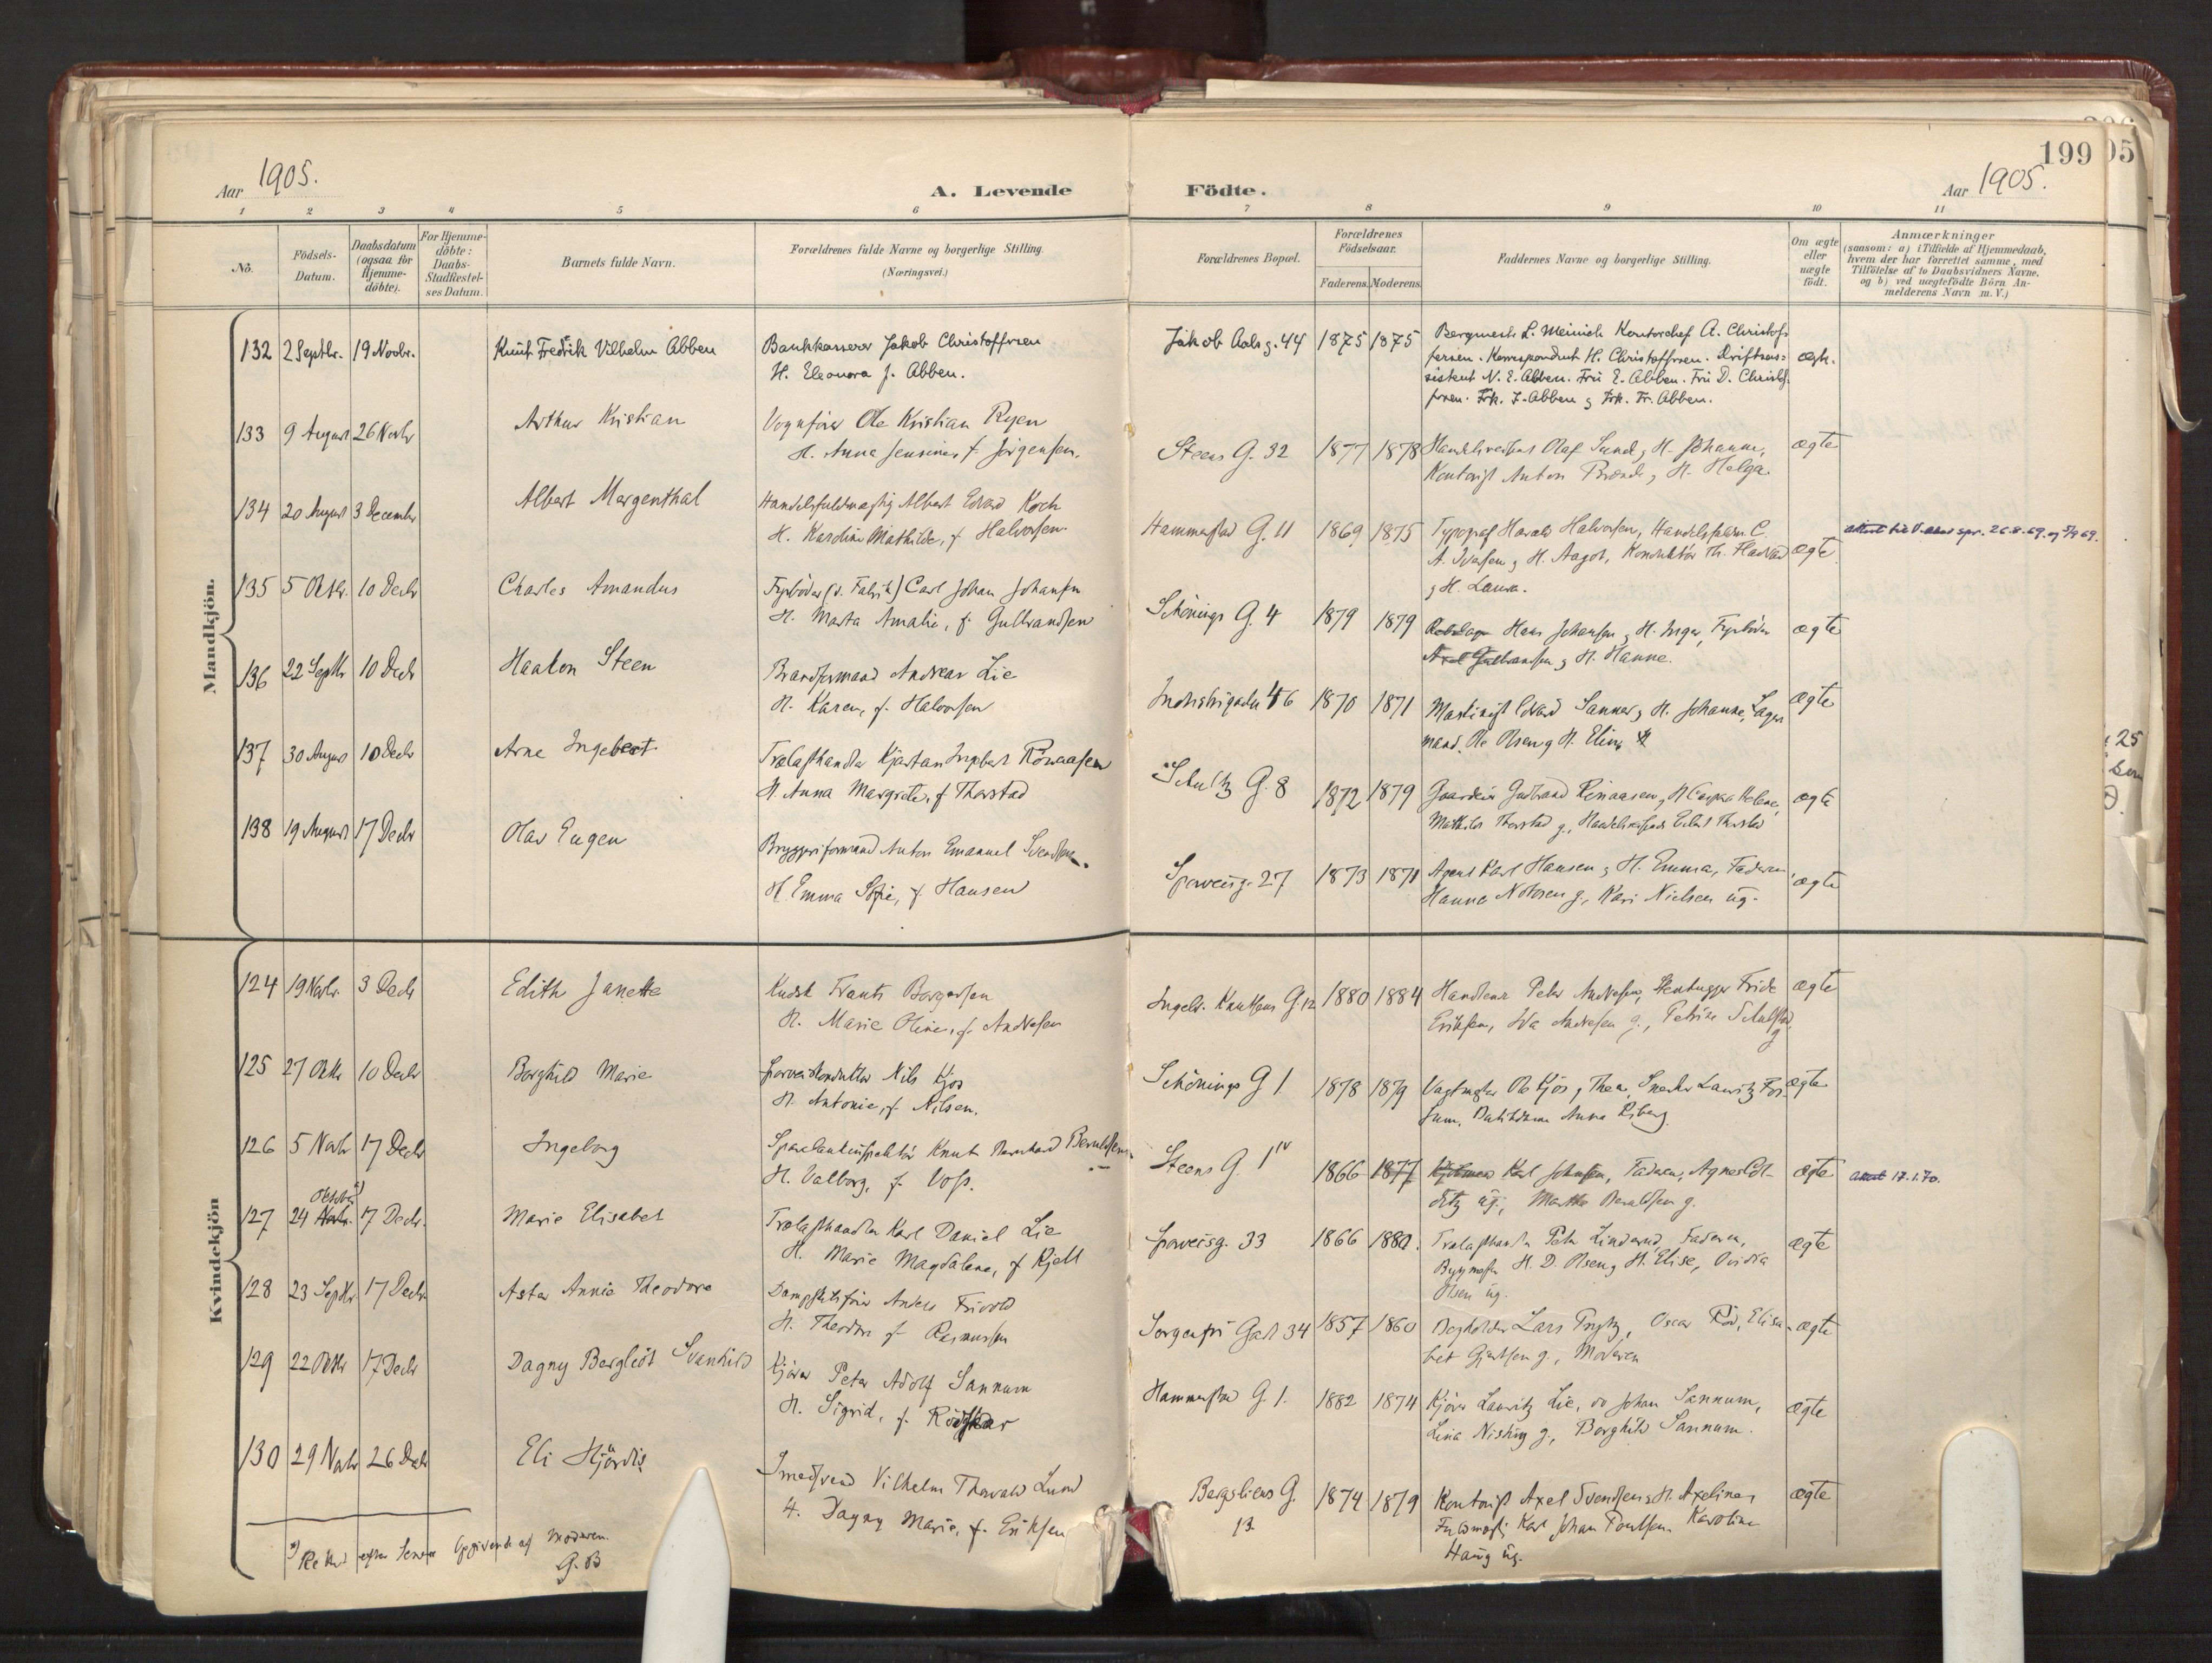 199
05
Aar 1905.
A. Levende
Födte.
Aar 1905.
1 2 3 4 5 6 7 8 9 10 11
No.
Födsels-
Datum.
Daabsdatum
(ogsaa for
Hjemme-
döbte).
For Hjemme-
döbte:
Daabs-
Stadfæstel-
ses Datum.
Barnets fulde Navn.
Forældrenes fulde Navne og borgerlige Stilling.
(Næringsvei.)
Forældrenes Bopæl.
Forældrenes
Födselsaar.
Faderens. Moderens.
Faddernes Navne og borgerlige Stilling.
Om ægte
eller
uægte
født.
Anmærkninger
(saasom: a) i Tilfælde af Hjemmedaab,
hvem der har forrettet samme, med
Tilföielse af to Daabsvidners Navne.
og b) ved uægtefödte Börn An-
melderens Navn m. V.)
Mandkjön.
132 2 Septbr. 19 Novbr. Knut Fredrik Vilhelm Abben Bankkasserer Jakob Christoffersen
H. Eleonora f. Abben.
Jakob Aals g. 44 1875 1875 Bergmest. L. Meinich Kontorchef A. Christof-
fersen. Korrespondent H. Christoffersen. Driftsas-
sistent N. E. Abben. Fru E. Abben. Fru D. Christof-
fersen. Frk. J. Abben g Frk. Fr. Abben.
ægte.
133 9 August 26 Novbr Arthur Kristian Vognfører Ole Kristian Ryen
H. Anna Jensine, f. Jörgensen.
Steens G. 32 1877 1878 Olaf Sund g H. Johanne,
Kontorist Anton g H. Helga
ægte
134 20 August 3 December Albert Mergenthal Handelsfuldmægtig Albert Edvard Koch
H. Karoline Mathilde, f Halvorsen
Hammerstad G. 11 1869 1875 Typograf Harald Halvorsen, Handelsfuldm. C.
A. Iversen g H. Aagot, Konduktör Th.
g H. Laura.
ægte
spr. 26.8.69. og
135 5 Oktbr. 10 Decbr Charles Amandus Fyrböder (v. Fabrik) Carl Johan Johansen
H. Marta Amalie, f. Gulbrandsen
Schönings G. 4 1879 1879 Hans Johansen g H. Inger, Fyrböder
Axel Gulbransen g H. Hanne.
ægte
136 22 Septbr 10 Decbr Haakon Steen Brandformand Andreas Lie
H. Karen, f. Halvorsen
Industrigaden 46 1870 1871 Maskinist Edvard Sanner g H. Johanne, Lager
mand. Ole Olsen g H. Elin
ægte
137 30 August 10 Decbr Arne Ingebert Trælasthandler Kjøstan Ingebert Rönaasen
H Anna Margrete, f Thorstad
Schultz G. 8 1872 1879 Gaardeier Gudbrand Rönaasen g H Helene,
Mathilde Thorstad g.,
ægte
138 19 August 17 Decbr Olav Eugen Bryggeriformand Anton Emanuel Svendsen.
H. Emma Sofie, f Hansen
Sporveisg. 27 1873 1871 Agent Karl Hansen g H. Emma, Faderen,
Hanna g., Kari Nielsen ug.
ægte
Kvindekjön
124 19 Novbr. 3 Decbr Edith Janette Kudsk Frants Borgersen
H. Marie Oline, f. Andresen
Ingebr. Knutsens G. 12 1880 1884 Handlende Peter Andresen, Stenhugger
Eriksen, g., Petrine
ægte
125 27 Oktbr 10 Decbr Borghild Marie Sporveiskonduktör Nils Kjos
H. Antonie, f. Nilsen.
Schönings G 1 1878 1879 Vagtmester Ole Kjös g Thea, Snedker Lauritz Fos-
sum, Anna
ægte
126 5 Novbr 17 Decbr Ingeborg Sparebankinspektör Knut Bernhard
H. Valborg, f. Voss.
Steens G. 1 IV 1866 1877 Karl Johnsen, Faderen, Agnes
ug., Martha g.
ægte
17.1.70.
127 24 Oktober x) Novbr. 17 Decbr. Marie Elisabet Trælasthandler Karl Daniel Lie
H. Marie Magdalene, f Kjell
Sporveisg. 33 1866 1880. Trælasthandl. Peter Linderud, Faderen,
Bygmester H. D. Olsen g H. Elise,
Olsen ug.
ægte
128 23 Septbr 17 Decbr Asta Annie Theodora Dampskibsförer Anders Frivold
H. Theodora f. Rasmussen
Sorgenfri Gade 34 1857 1860 Bogholder Lars, Oscar Röd, Elisa-
bet Gjertsen g., Moderen
ægte
129 22 Oktbr 17 Decbr Dagny Bergliot Svanhild Kjörer Peter Adolf Sannum
H. Sigrid, f.
Hammerstad G. 1. 1882 1874 Kjörer Lauritz Lie, do Johan Sannum,
Lina g., Borghild Sannum.
ægte
130 29 Novbr 26 Decbr Eli Hjördis Smedsvend Vilhelm Thorvald Lund
H. Dagny Marie, f. Eriksen
Bergsliens G.
13
1874 1879 Kontorist Axel Svendsen g H. Axeline,
Fuldmægtig Karl Johan Poulsen. Karoline
Haug ug.
ægte
x) Rettet efter senere Opgivende af Moderen.
G. B
25